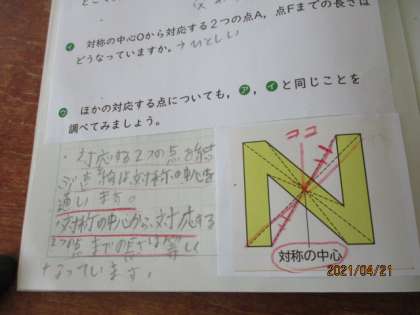 イ 対称の中心Oから対応する2つの点A，点Fまでの長さは
どうなっていますか。→ひとしい
ウ ほかの対応する点についても，ア，イと同じことを
調べてみましょう。
・対応する2つの点を結
ぶ直線は対称の中心を
通ります。
・対称の中心から、対応する
2つの点までの長さは等しく
なっています。
ココ
対称の中心
2021/04/21